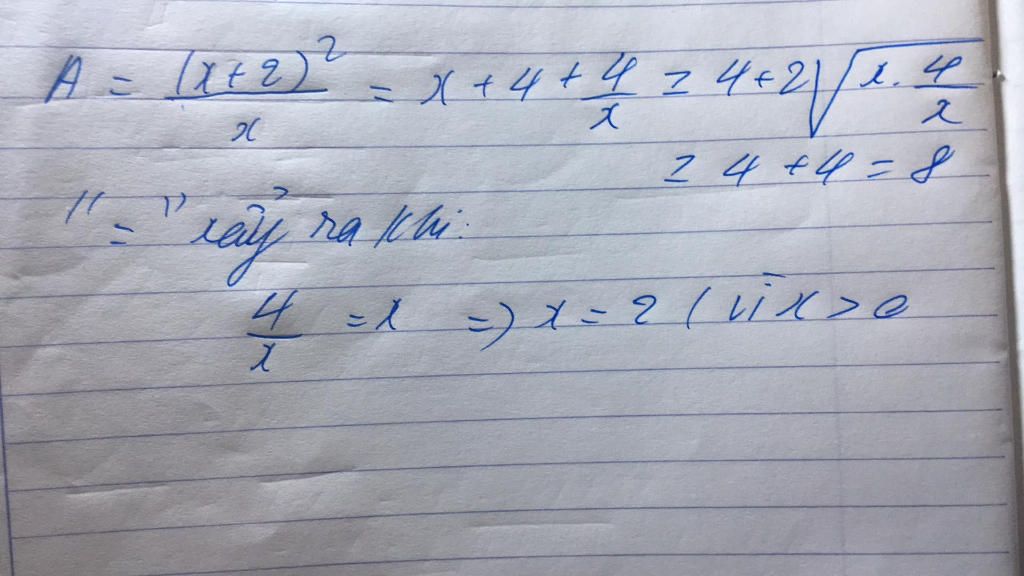 A = (x+2)²/x = x + 4 + 4/x ≥ 4 + 2√(x . 4/x)
≥ 4 + 4 = 8
"=" xảy ra khi:
4/x = x => x = 2 ( vì x > 0